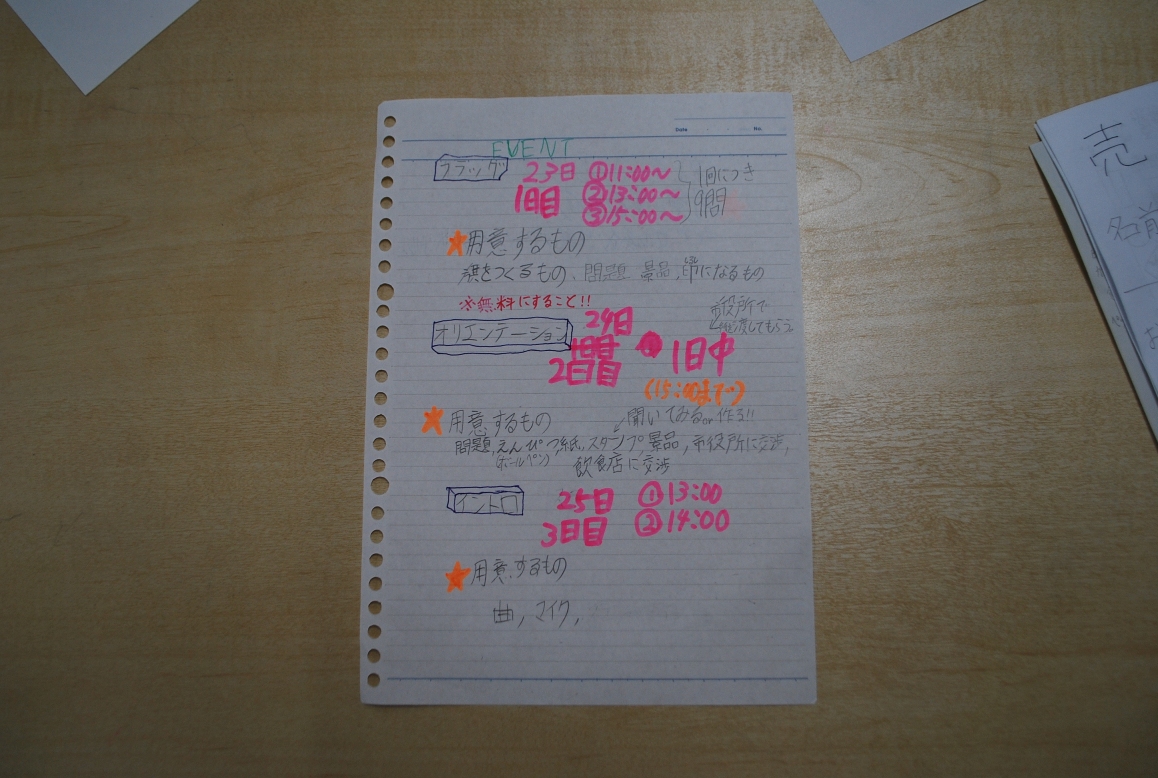 Date No.
EVENT
フラッグ 23日 ①11:00～ 1回につき
1日目 ②13:00～ 9問
③15:00～
★用意するもの
旗をつくるもの、問題 景品, 印になるもの
※無料にすること!!
市役所で
オリエンテーション 24日
2日目 1日中
(15:00まで)
★用意するもの 聞いてみるor作る!!
問題, えんぴつ, 紙, スタンプ, 景品, 市役所に交渉,
(ボールペン) 飲食店に交渉
イントロ 25日 ①13:00
3日目 ②14:00
★用意するもの
曲, マイク,
売
名前